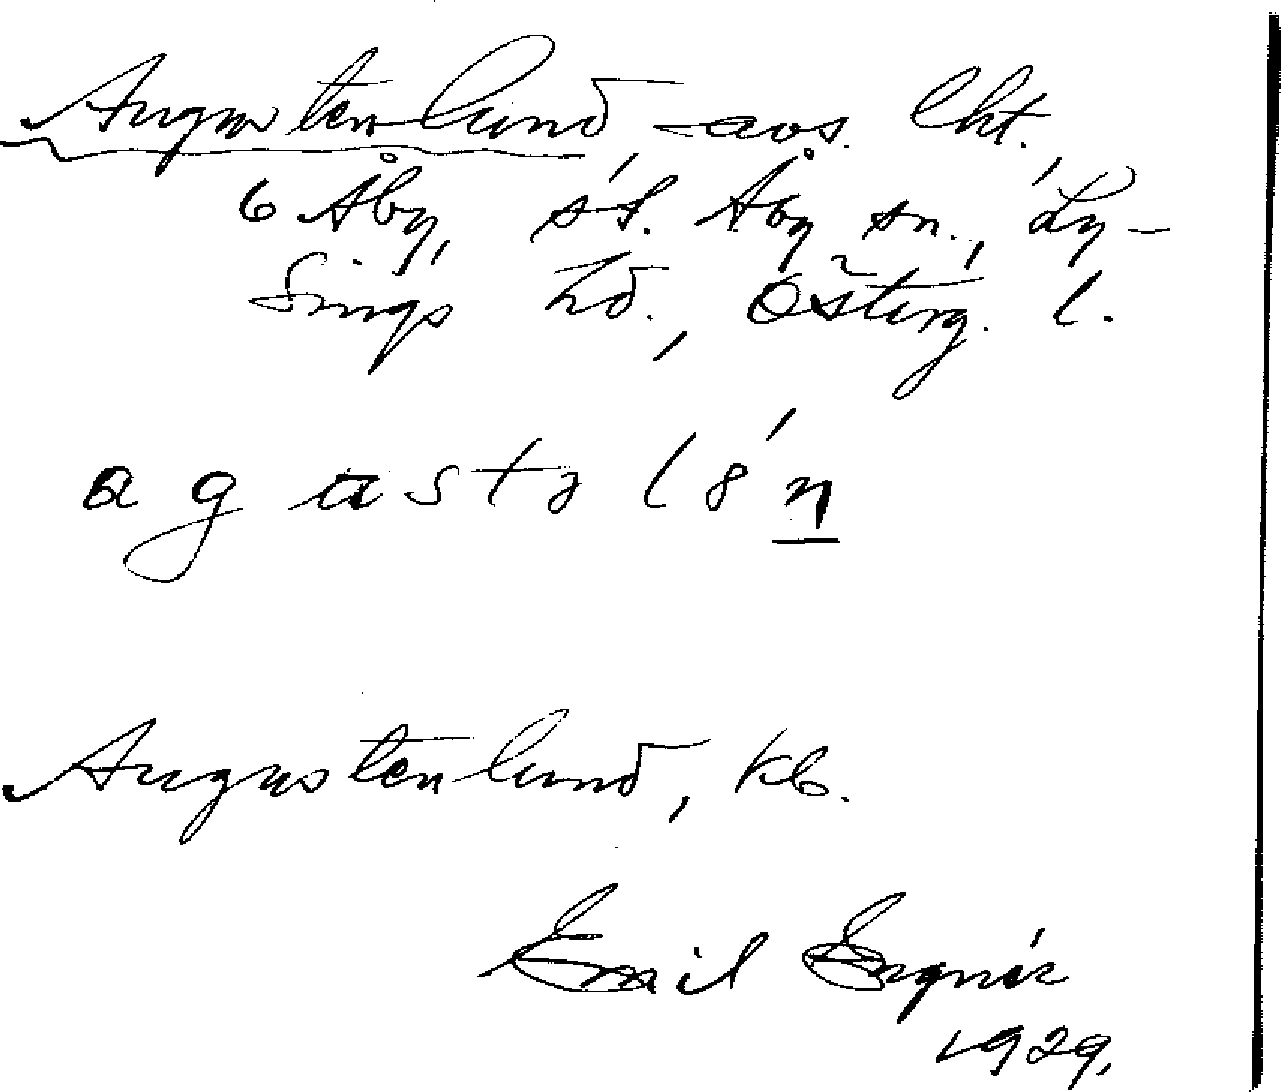 Augustenlund, avs. lht.,
6 Åby, st. Åby sn., Ly-
sings hd., Österg. l.
a g u s t ə l ə n
Augustenlund, kb.
Emil
1929.